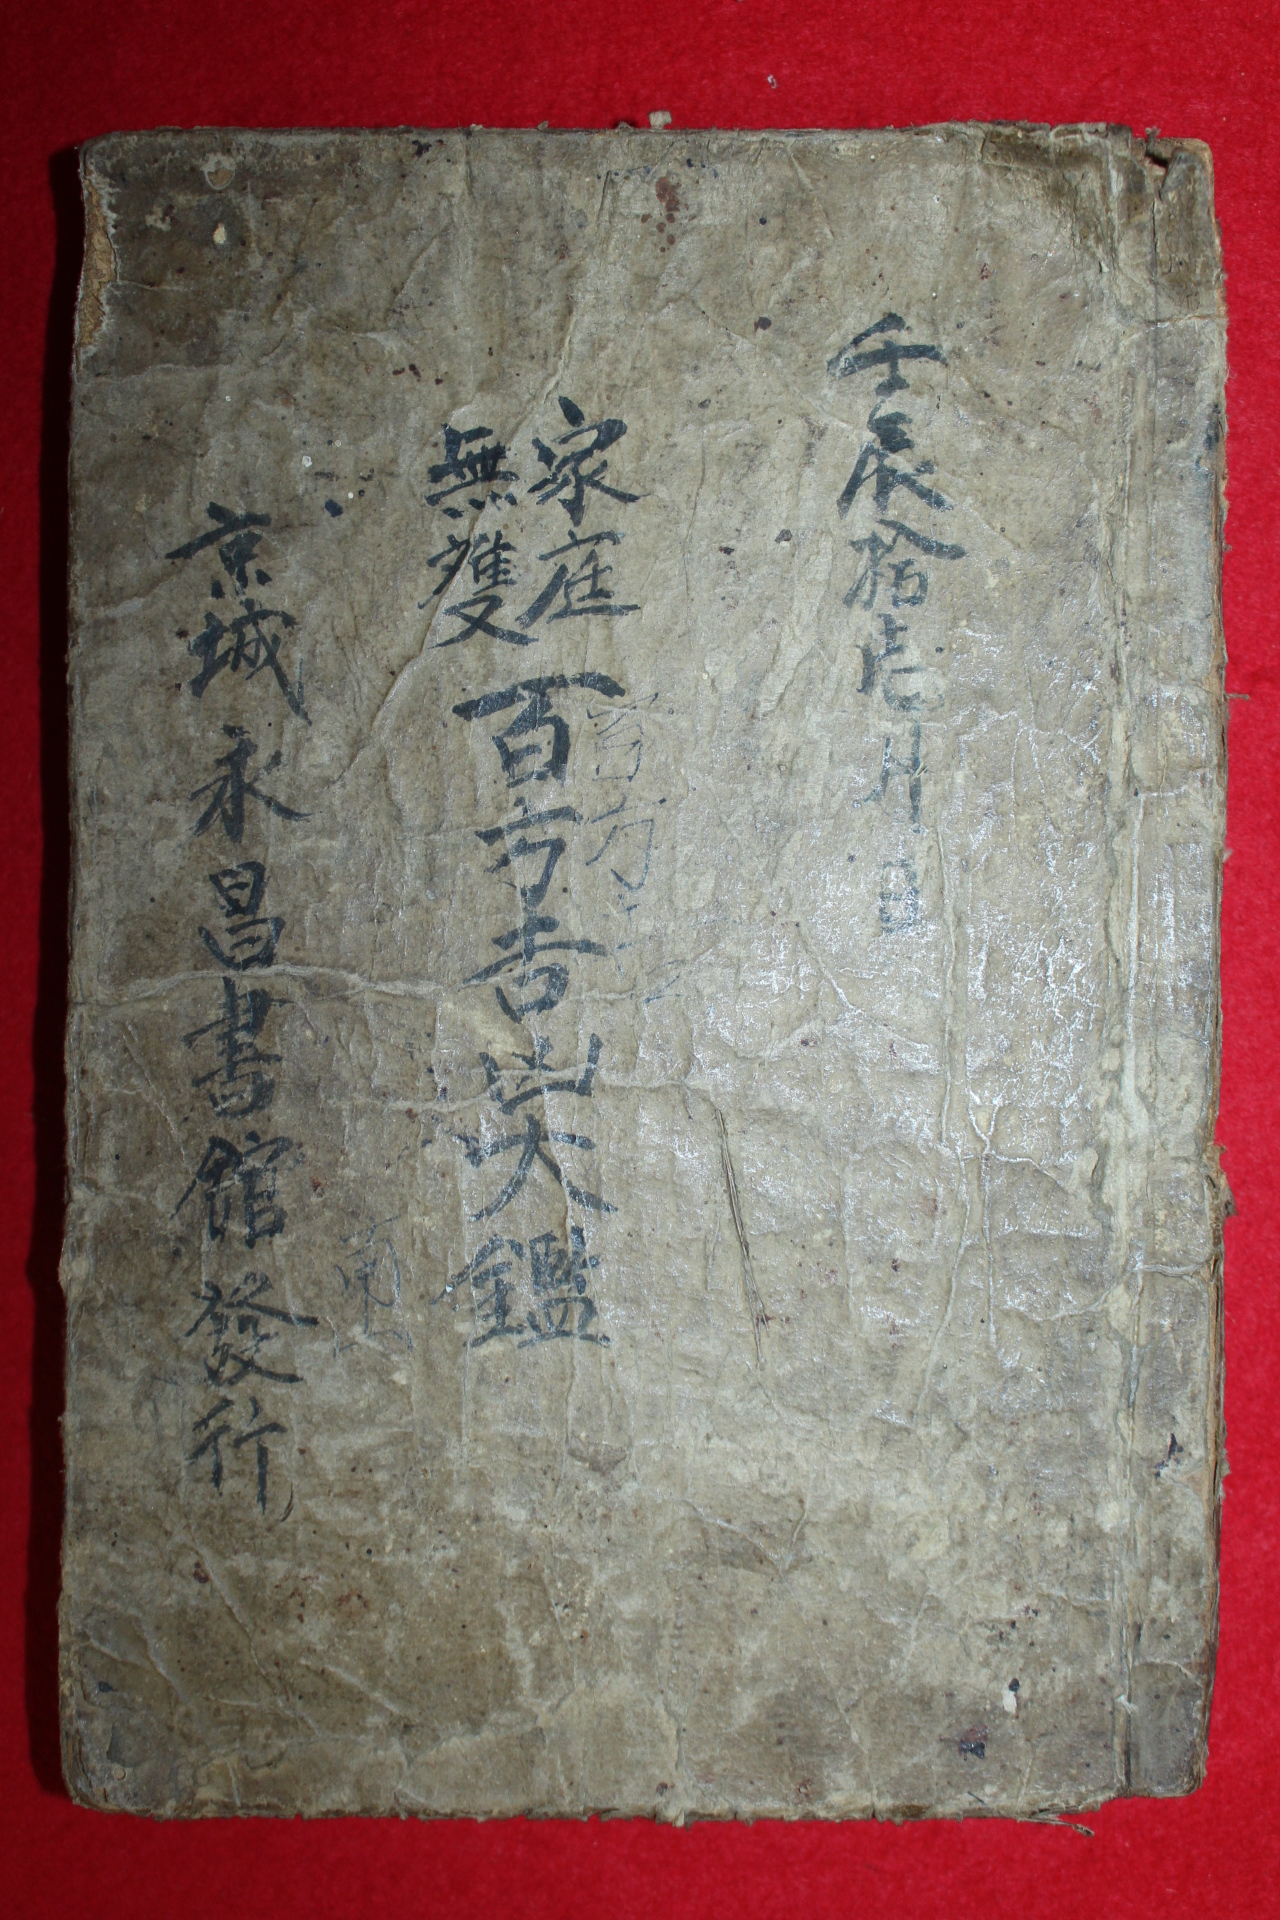 壬辰拾壱月 日
家庭
無雙
百方吉凶大鑑
百方
京城永昌書館發行